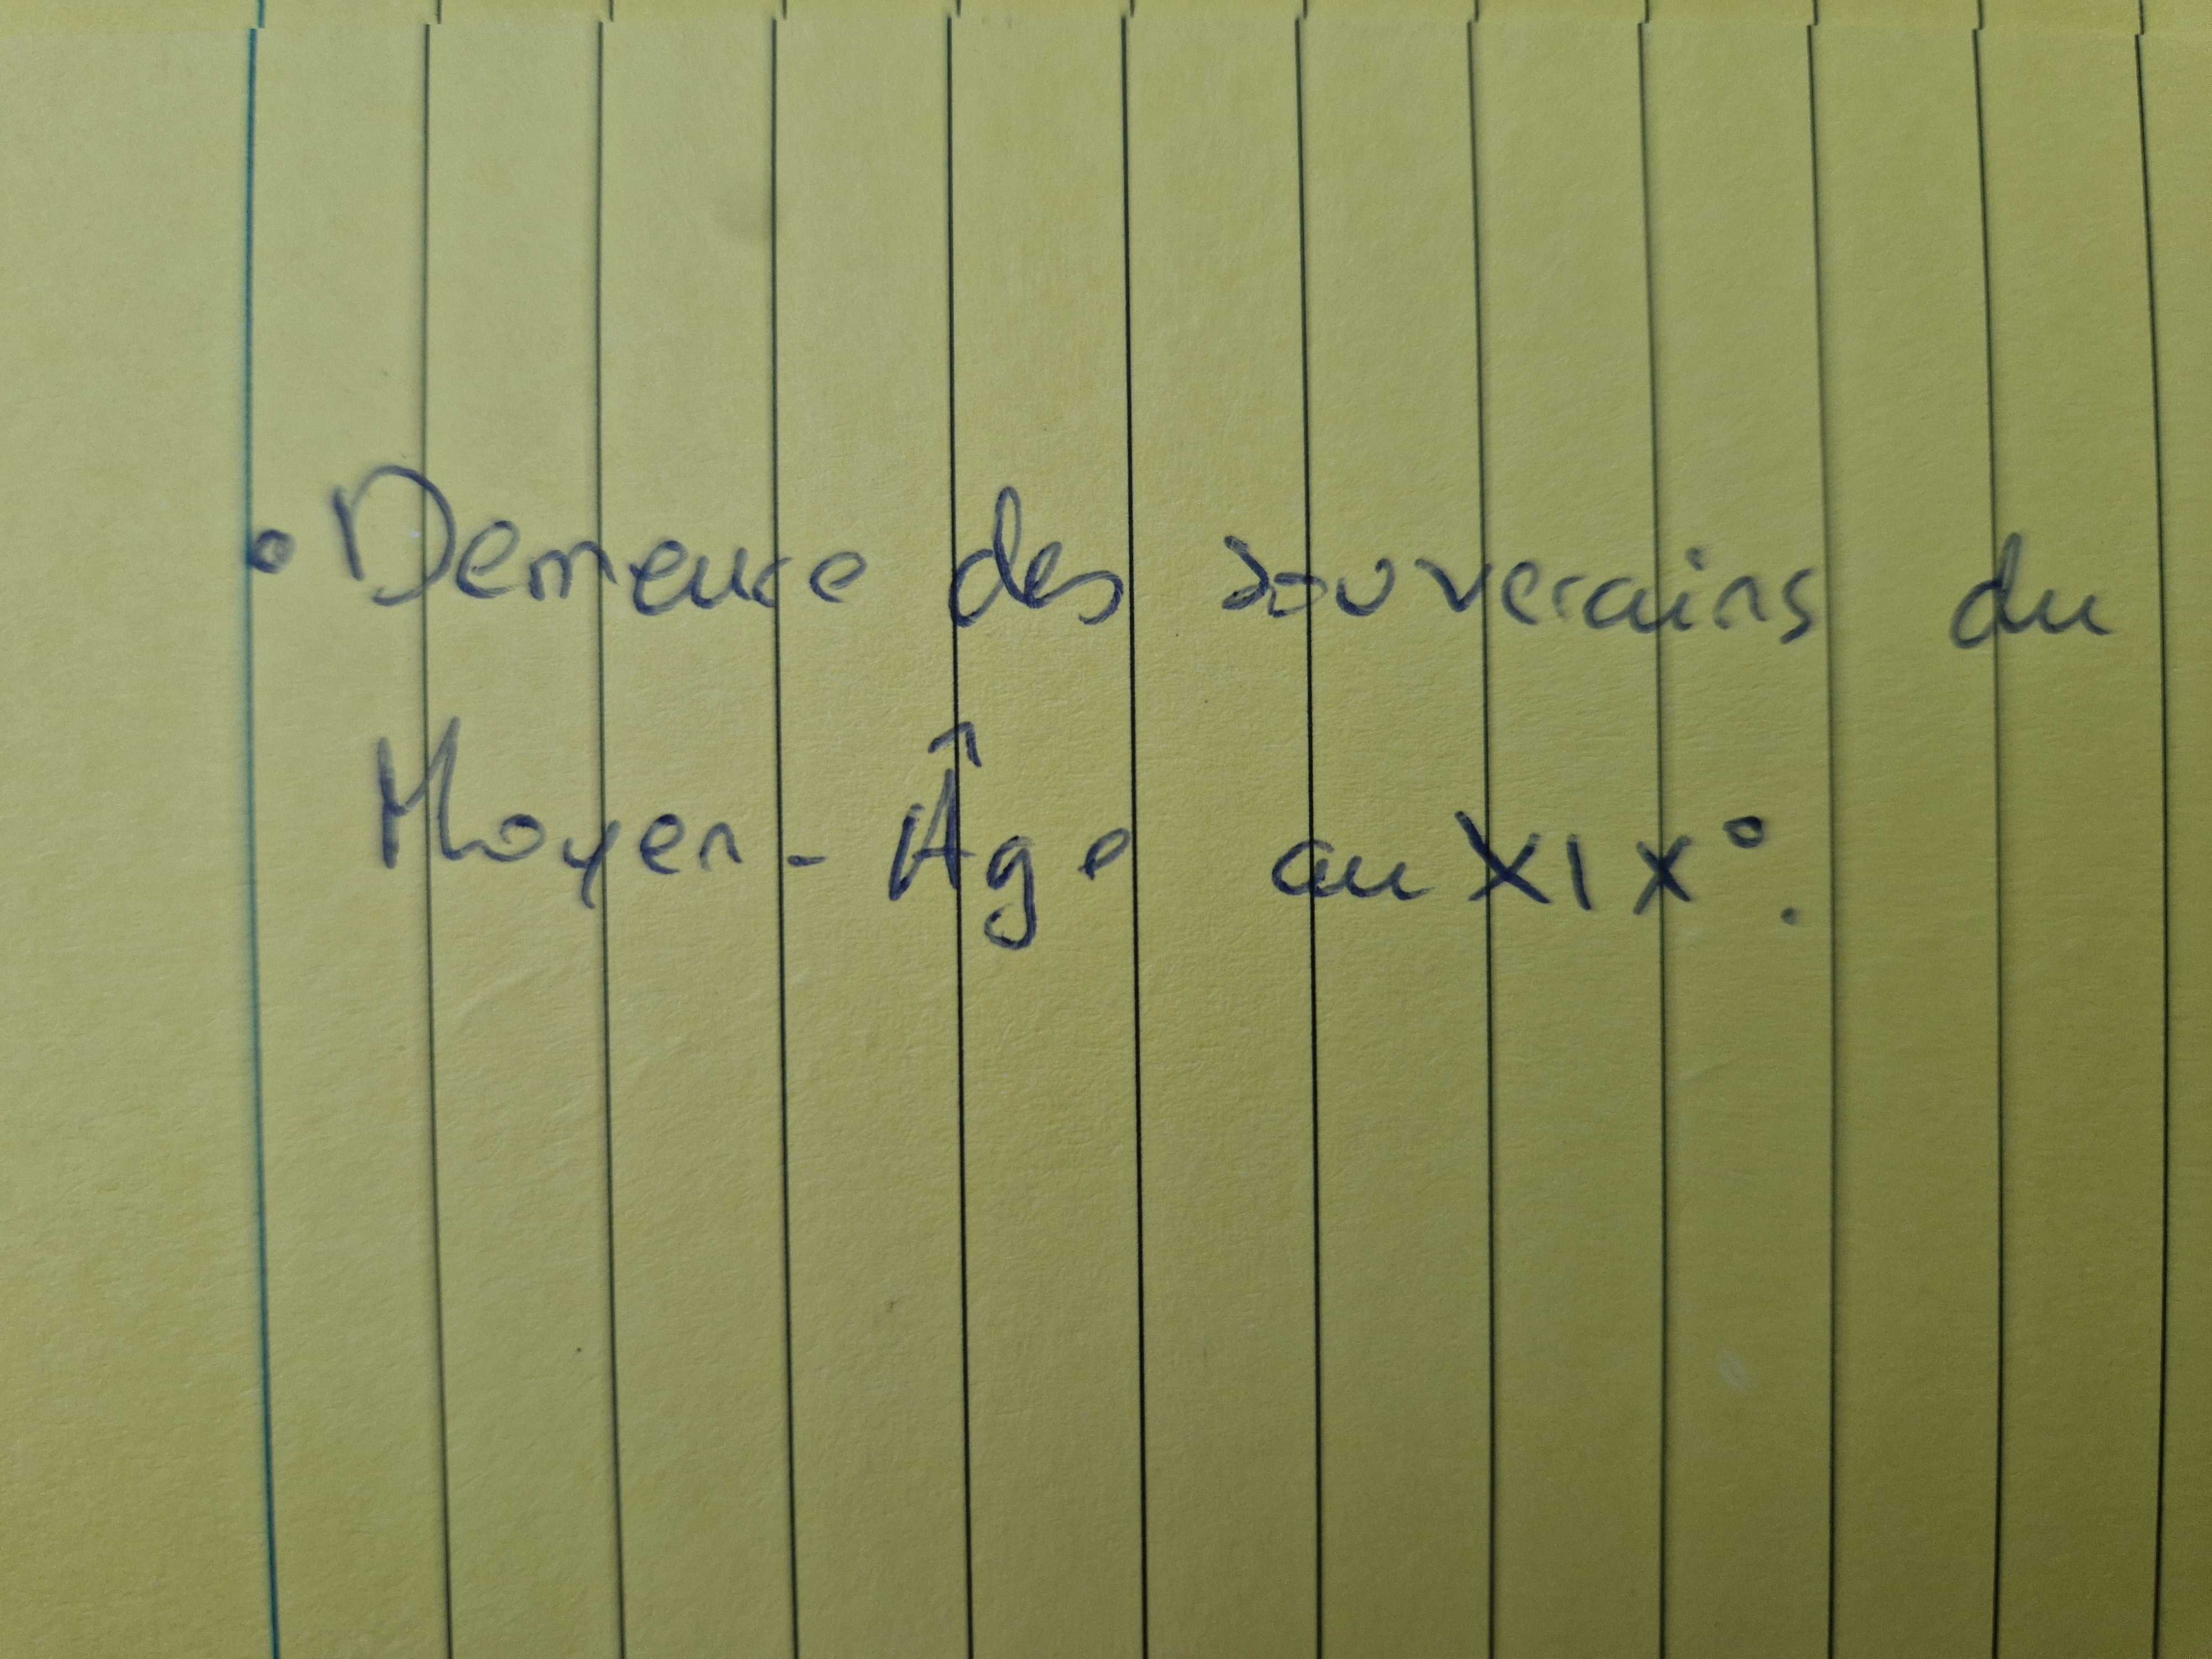 • Demeure des souverains du
Moyen-Âge au XIX°.